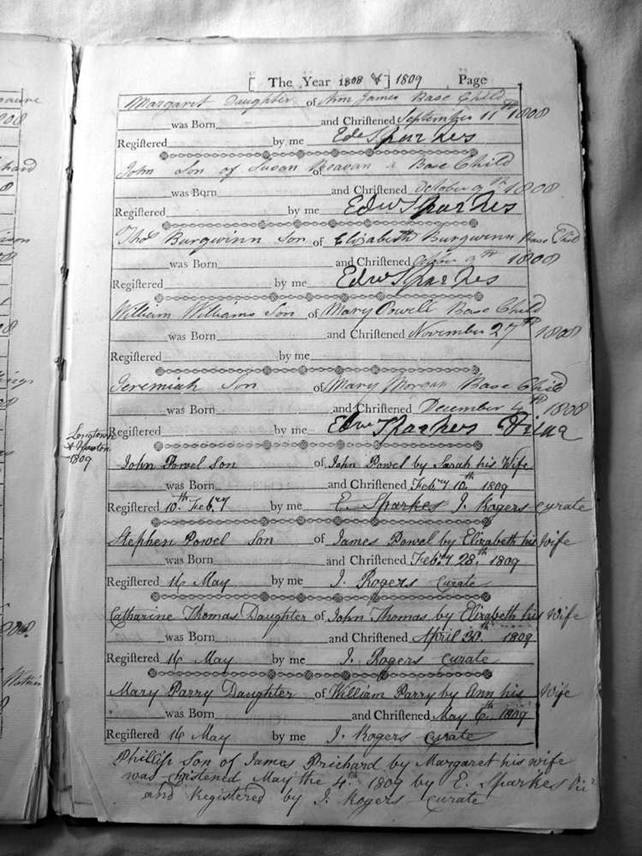 [ The Year 1808 & ] 1809 Page
Margaret Daughter of Ann James Base Child
was Born and Chriſtened September 11th 1808
Regiſtered by me Edw Sparkes
John Son of Susan Beavan a Base Child
was Born and Chriſtened October 9th 1808
Regiſtered by me Edw Sparkes
Thos Burgwinn Son of Elizabeth Burgwinn Base Child
was Born and Chriſtened 9th 1808
Regiſtered by me Edw Sparkes
William Williams Son of Mary Powell Base Child
was Born and Chriſtened November 27th 1808
Regiſtered by me
Jeremiah Son of Mary Morgan Base Child
was Born and Chriſtened December 4th 1808
Regiſtered by me Edw Sparkes
Longtown
& Newton
1809
John Powel Son of John Powel by Sarah his Wife
was Born and Chriſtened Febry 10th 1809
Regiſtered 10th Febry by me E. Sparkes J. Rogers curate
Stephen Powel Son of James Powel by Elizabeth his Wife
was Born and Chriſtened Febry 28th 1809
Regiſtered 16 May by me J. Rogers curate
Catharine Thomas Daughter of John Thomas by Elizabeth his Wife
was Born and Chriſtened April 30th 1809
Regiſtered 16 May by me J. Rogers curate
Mary Parry Daughter of William Parry by Ann his Wife
was Born and Chriſtened May 6th 1809
Regiſtered 16 May by me J. Rogers curate
Phillip Son of James Prichard by Margaret his wife
was cristened May the 4th 1809 by E. Sparkes
and Registered by J. Rogers curate